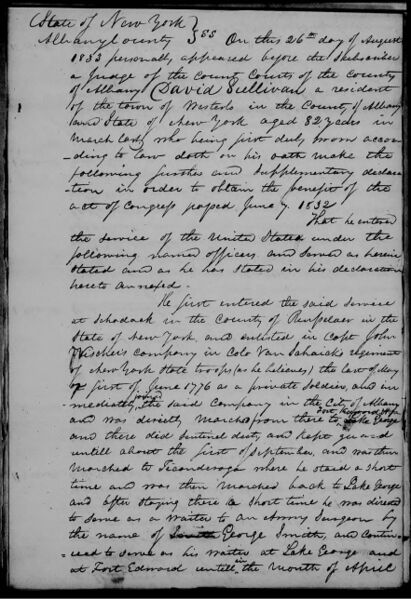 (State of New York }
Albany County } SS On this 26th day of August
1833 personally appeared before the subscriber
a Judge of the County Courts of the County
of Albany David Sullivan a resident
of the town of Westerlo in the County of Albany
and State of New York aged 82 years in
March last, who being first duly sworn accor
ding to law doth on his oath make the
following further and supplementary declara
tion in order to obtain the benefit of the
act of Congress passed June 7. 1832
That he entered
the service of the United States under the
following named officers and served as herein
stated and as he has stated in his declaration
hereto annexed.
He first entered the said service
at Schodack in the County of Rensselaer in the
State of New York, and enlisted in Capt John
Visscher's company in Colo Van Schaick's regiment
of New York State troops (as he believes) the last of May
or first of June 1776 as a private Soldier, and im
mediately joined the said company in the City of Albany
and was directly marched from there to Lake George
and there did Sentinel duty, and kept guard
untill about the first of September, and was then
marched to Ticonderoga where he staid a short
time and was then marched back to Lake George
and after staying there a short time he was directed
to serve as a waiter to an Army Surgeon by
the name of George Smith, and contin
ued to serve as his waiter at Lake George and
at Fort Edward untill in the month of April